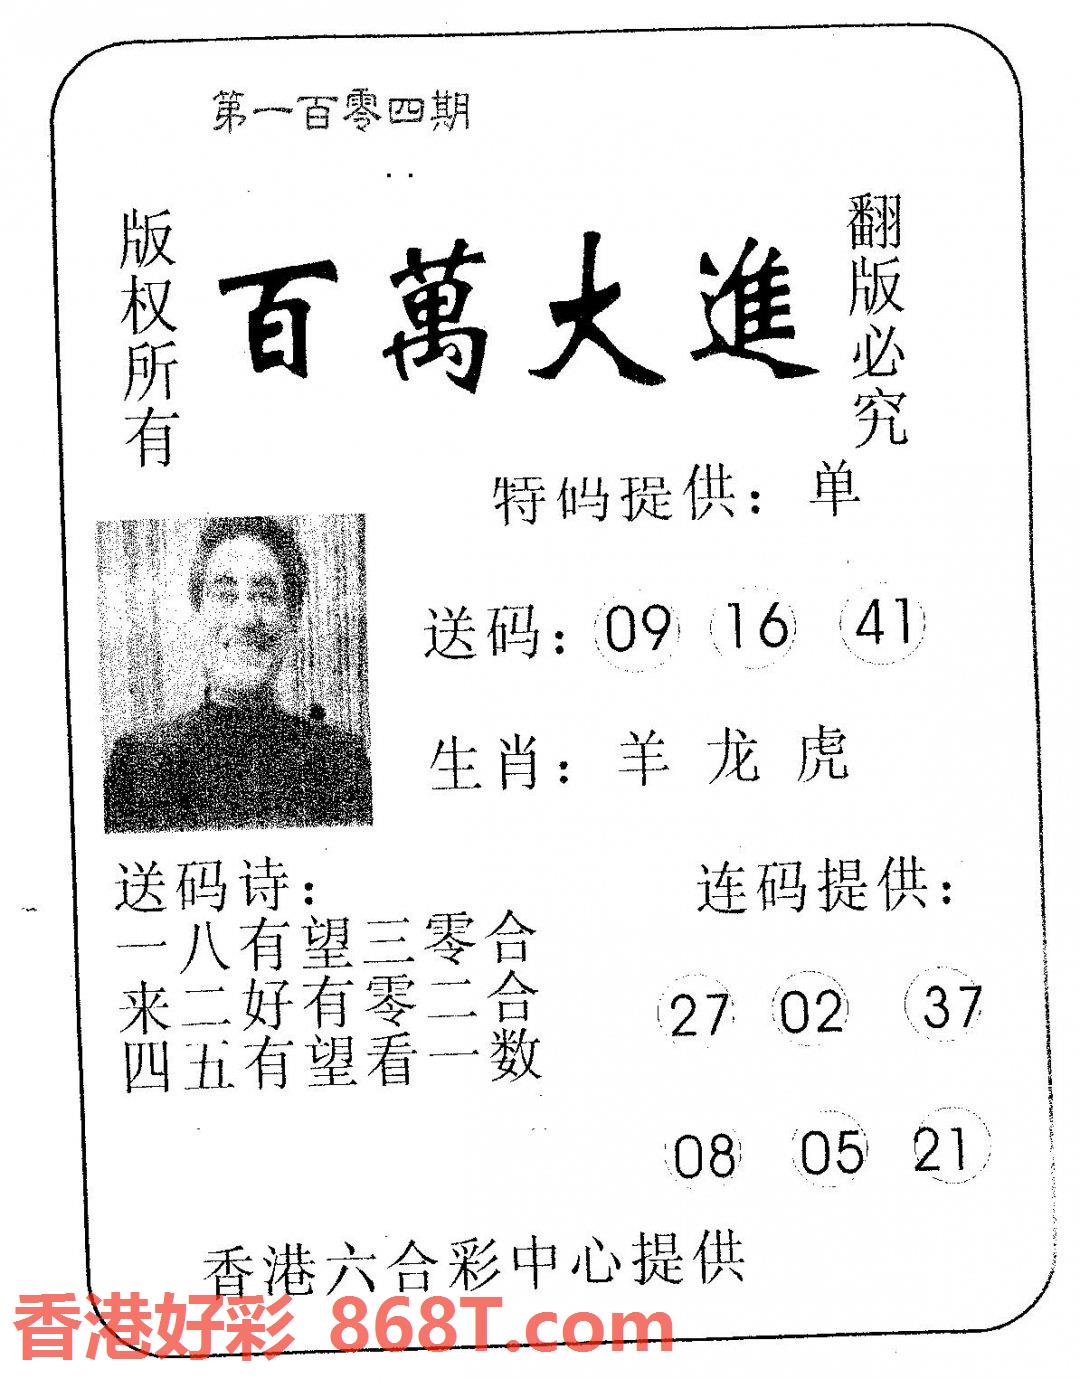 第一百零四期
版权所有
百萬大進
翻版必究
特码提供：单
送码：09 16 41
生肖：羊龙虎
送码诗：
一八有望三零合
来二好有零二合
四五有望看一数
连码提供：
27 02 37
08 05 21
香港六合彩中心提供
香港好彩 868T.com